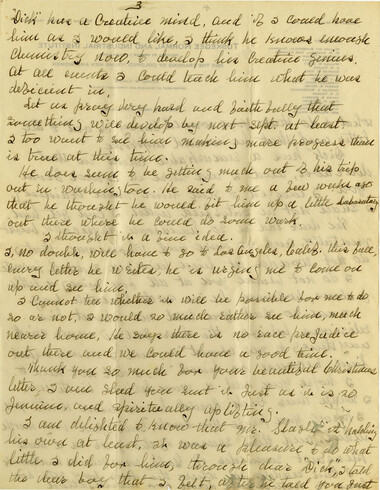 3
Dick has a Creative mind, and if I could have
him as I would like, I think he knows enough
Chemistry now, to develop his Creative genius.
At all events I could teach him what he was
deficient in.
Let us pray very hard and faithfully that
something will develop by next Sept. at least.
I too want to see him making more progress than
is true at this time.
He does seem to be getting much out of his trip
out in Washington. He said to me a few weeks ago
that he thought he would fit him up a little laboratory
out there where he could do some work.
I thought it a fine idea.
I, no doubt, will have to go to Los Angeles, Calif. this fall,
every letter he writes, he is urging me to come on
up and see him,
I Cannot see whether it will be possible for me to do
so or not, I would so much rather see him, much
nearer home, He says there is no race prejudice
out there and we could have a good time.
Thank you so much for your beautiful Christmas
letter, I am glad you sent it just as it is so
genuine, and spiritually uplifting.
I am delighted to know that Mr. is holding
his own at least, it was a pleasure to do what
little I did for him, through dear Dick, I told
the dear boy that I felt, as he told you just